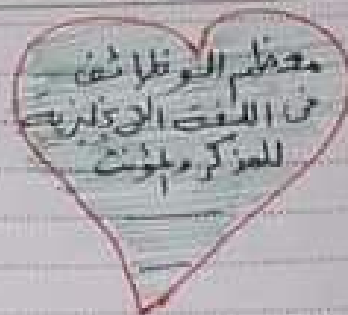 معظم الوظائف
في اللغة الإنجليزية
للمذكر والمؤنث